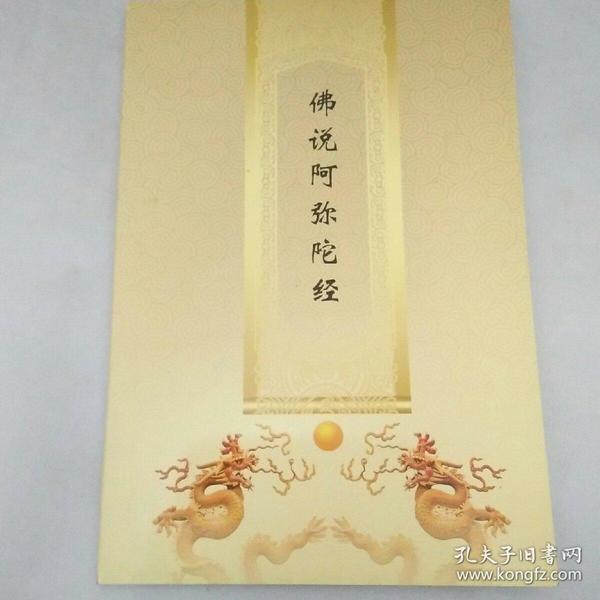 佛说阿弥陀经
孔夫子旧書网
www.kongfz.com